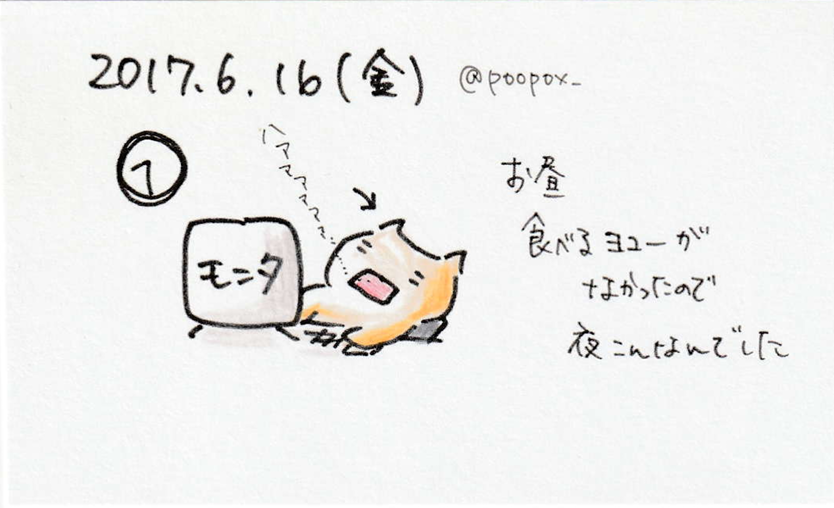 2017.6.16(金) @poopox_
1
ハァァァァァァ
モニタ
お昼
食べるヨユーが
なかったので
夜こんなんでした